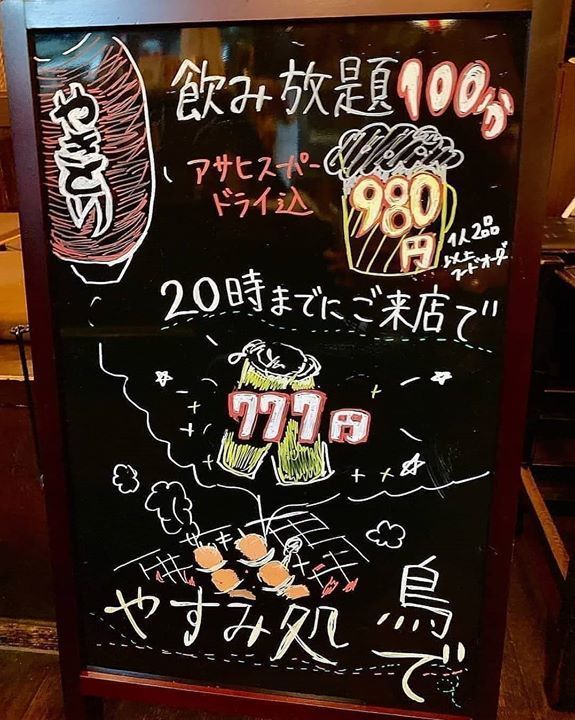 やきとり
飲み放題100分
アサヒスーパー
ドライ込
980
円
1人2品
以上
フードオーダー
20時までにご来店で
777円
やすみ処
鳥で